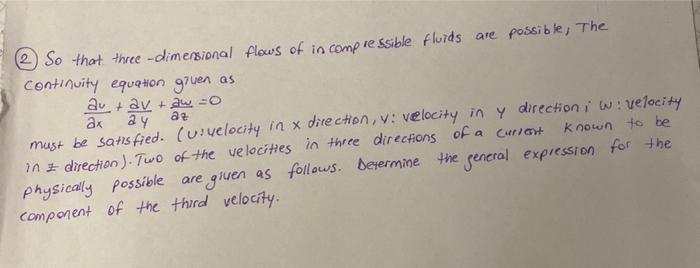 ② So that three-dimensional flows of incompressible fluids are possible, The
continuity equation given as
∂u/∂x + ∂v/∂y + ∂w/∂z = 0
must be satisfied. (u: velocity in x direction, v: velocity in y direction; w: velocity
in z direction). Two of the velocities in three directions of a current known to be
physically possible are given as follows. Determine the general expression for the
component of the third velocity.